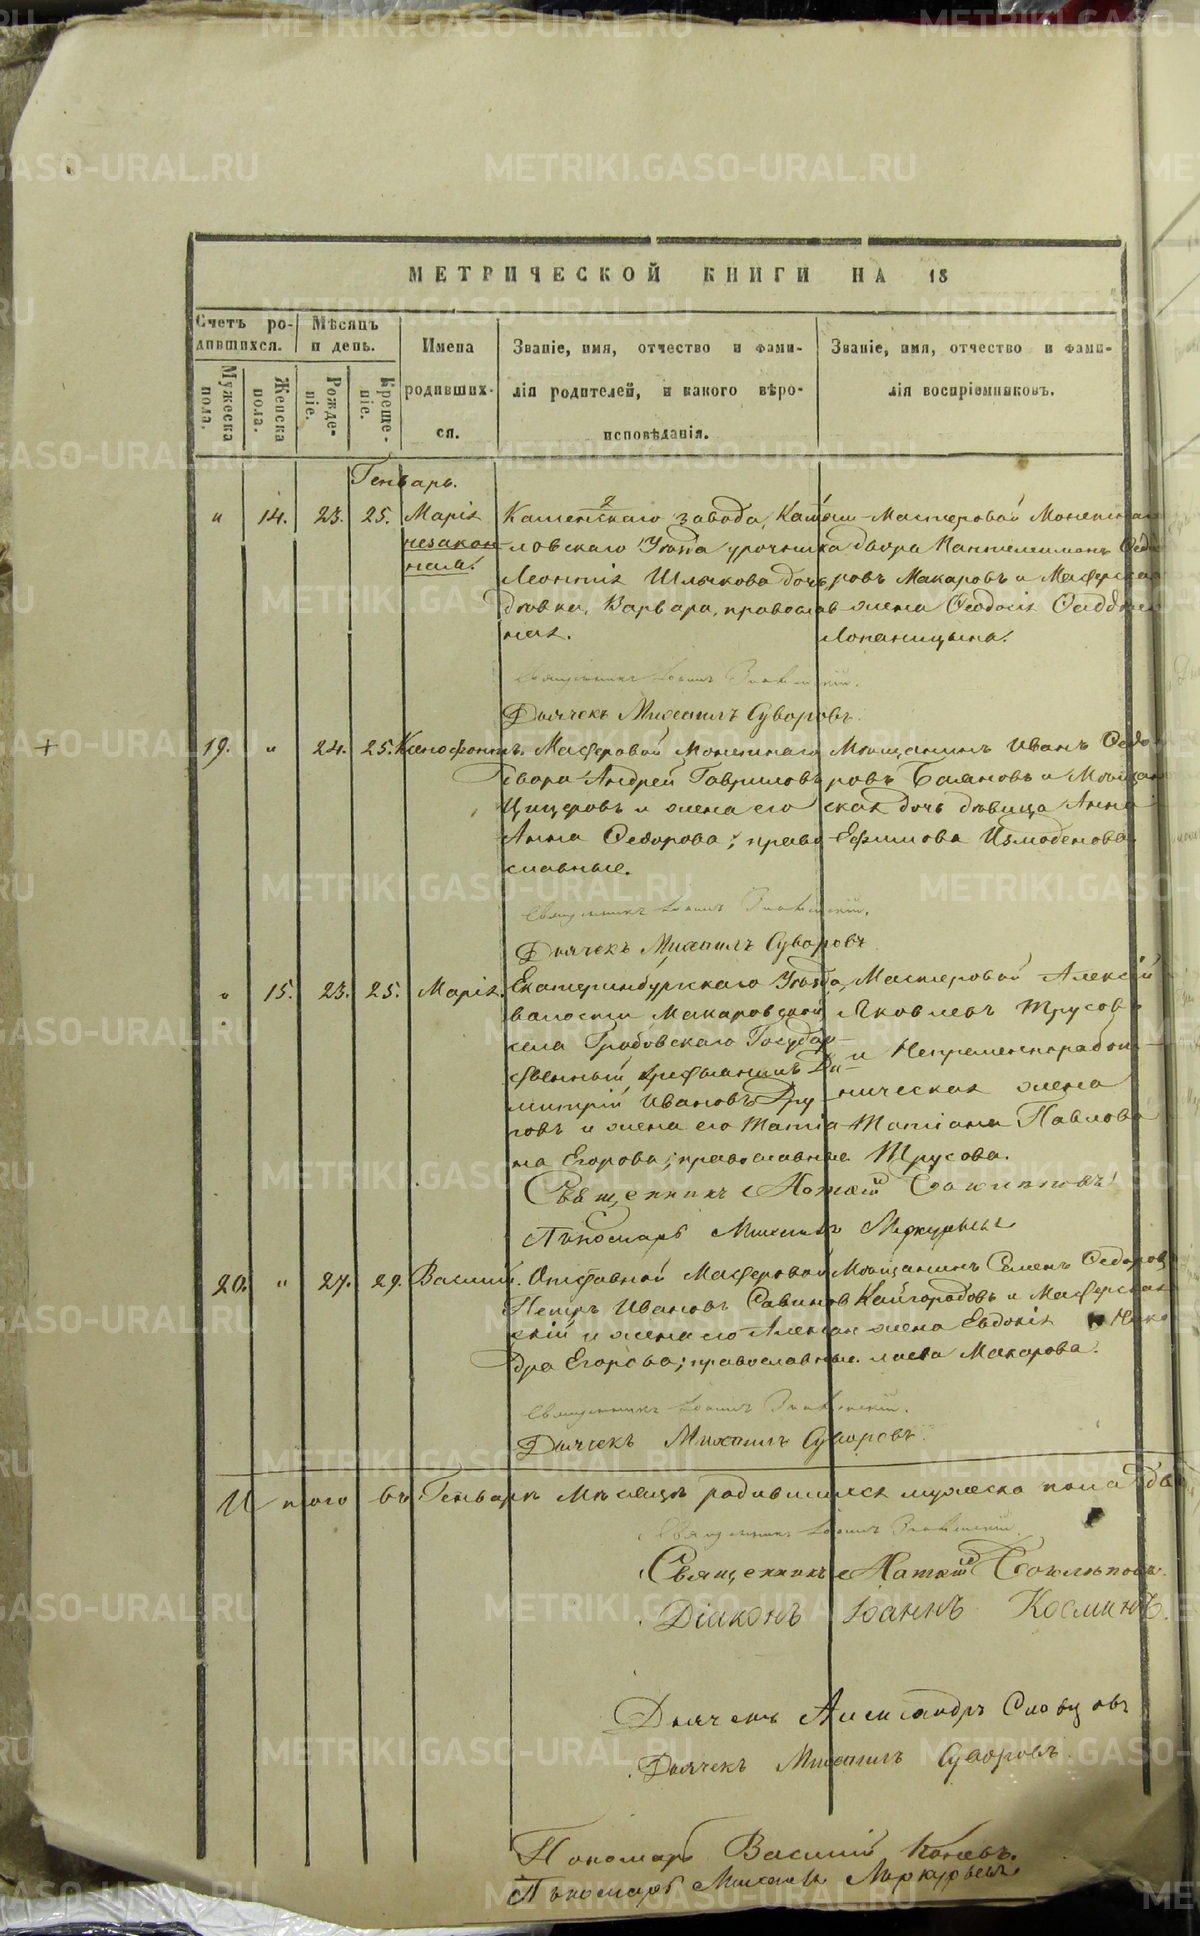 МЕТРИЧЕСКОЙ КНИГИ НА 18
Счетъ родившихся.
Мѣсяцъ и день.
Имена родившихся.
Званіе, имя, отчество и фамилія родителей, и какого вѣроисповѣданія.
Званіе, имя, отчество и фамилія воспріемниковъ.
Мужеска пола.
Женска пола.
Рожденіе.
Крещеніе.
Генварь.
" 14. 23. 25. Марія незаконная.
Каменскаго завода, Камышловскаго Уѣзда урочника
Леонтія Шлыкова дочь
дѣвка, Варвара, православная.
Мастеровой Монетнаго
двора Пантелеимонъ Ѳедоровъ Макаровъ и Мастерская
жена Ѳеодосія
Лопаницына.
Священникъ Іоаннъ
Дьячекъ Михаилъ Суворовъ.
+
19. " 24. 25. Ксенофонтъ.
Мастеровой Монетнаго
Двора Андрей Гавриловъ
Цицеровъ и жена его
Анна Ѳедорова; православные.
Мѣщанинъ Иванъ Ѳедоровъ Балановъ и Мѣщанская дочь дѣвица Анна
Ефимова Измоденова.
Священникъ Іоаннъ
Дьячекъ Михаилъ Суворовъ
" 15. 23. 25. Марія.
Екатеринбургскаго Уѣзда,
волости Макаровской
села Гробовскаго Государственный крестьянинъ Димитрій Ивановъ
и жена его Татіана Егорова; православные
Мастеровой Алексій
Яковлевъ Трусовъ
и Непременноработническая жена
Татіана Павлова
Трусова.
Священникъ
Пономарь Михаилъ Меркурьевъ
20. " 27. 29. Василій.
Отставной Мастеровой
Петръ Ивановъ Савиновскій и жена его Александра Егорова; православные.
Мѣщанинъ Семенъ Ѳедоровъ
Кайгородовъ и Мастерская
жена Евдокія
Макарова.
Священникъ Іоаннъ
Дьячекъ Михаилъ Суворовъ.
Итого въ Генварѣ Мѣсяцѣ родившихся мужеска пола
Священникъ Іоаннъ
Священникъ
Діаконъ Іоаннъ Косминъ.
Дьячекъ Александръ Словцовъ
Дьячекъ Михаилъ Суворовъ.
Пономарь Василій
Пономарь Михаилъ Меркурьевъ
METRIKI.GASO-URAL.RU